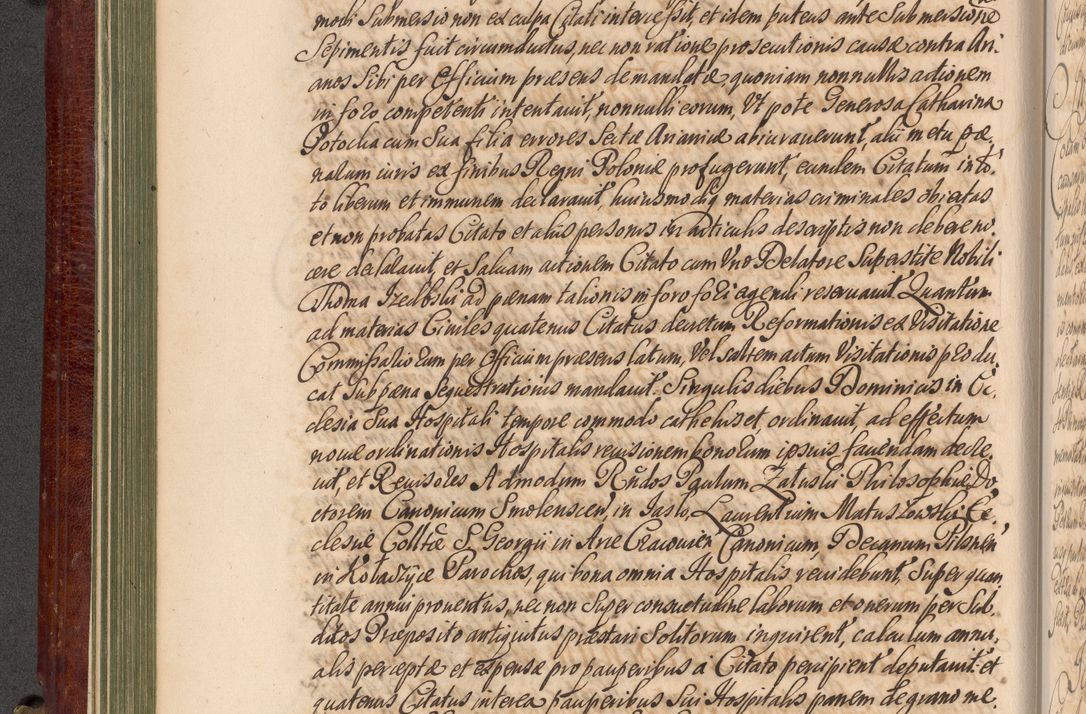 modi Submersio non ex culpa Citati intercessit, et idem puteus ante Submersione
Sepimentis fuit circumductus, nec non ratione prosecutionis causæ contra Ari-
anos Sibi per Officium præsens demandatæ, quoniam nonnullis actionem
in foro competenti intentavit, nonnulli eorum, Vt pote Generosa Catharina
Potocka cum Sua filia errores Sectæ Arianicæ abiuraverunt, alii metu pæ
nalum iuris ex finibus Regni Poloniæ profugerunt, eundem Citatum in to-
to liberum et immunem declaravit, huiusmodiq materias criminales obiectas
et non probatas Citato et aliis personis in articulis descriptis non debere no-
cere declaravit, et Salvam actionem Citato cum Vno Delatore Superstite Nobili
Thoma Izdebski ad pænam talionis in foro fori agendi reservavit. Quantum
ad materias Civiles quatenus Citatus decretum Reformationis ex Visitatione
Commissalio Eum per Officium præsens latum, Vel saltem actum Visitationis produ
cat Sub pæna Sequestrationis mandavit. Singulis diebus Dominicis in Ec-
clesia Sua Hospitali tempore commodo catheliset ordinavit, ad effectum
novæ ordinationis Hospitalis revisionem bonorum ipsius faciendam decre
vit, et Revisores Admodum Rndos Paulum Zaluski Philosophiæ Do
ctorem Canonicum Smolenscen, in Jaslo, Laurentium Matuszowski Ec-
clesiæ Colltæ S. Georgii in Arce Cracovien Canonicum Decanum Pilsnen
in Kołaszyce Parochos, qui bona omnia Hospitalis revidebunt, Super quan
titate annui proventus, nec non Super consuetudine laborum et onerum per Sub-
ditos Præposito antiquitus præstari Solitorum inquirent, calculum annu-
alis perceptæ et expensæ pro pauperibus a Citato percipient deputavit et
quatenus Citatus interea pauperibus Sui Hospitalis panem de grano me-